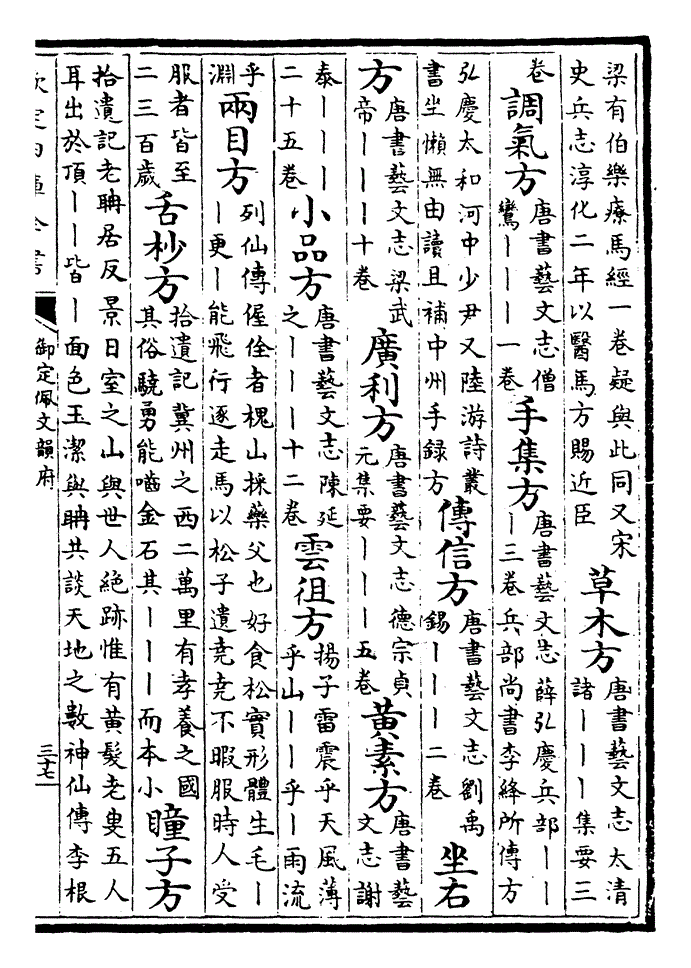 梁有伯樂療馬經一卷疑與此同又宋
史兵志淳化二年以醫馬方賜近臣
草木方
唐書藝文志太清
諸丨丨丨集要三
卷
調氣方
唐書藝文志僧
鸞丨丨丨一卷
手集方
唐書藝文志薛弘慶兵部丨丨
丨三卷兵部尚書李絳所傳方
弘慶太和河中少尹又陸游詩叢
書坐懶無由讀且補中州手録方
傳信方
唐書藝文志劉禹
錫丨丨丨二卷
坐右
方
唐書藝文志梁武
帝丨丨丨十卷
廣利方
唐書藝文志德宗貞
元集要丨丨丨五卷
黃素方
唐書藝
文志謝
泰丨丨丨
二十五卷
小品方
唐書藝文志陳延
之丨丨丨十二卷
雲徂方
揚子雷震乎天風薄
乎山丨丨乎丨雨流
乎
淵
兩目方
列仙傳偓佺者槐山採藥父也好食松實形體生毛丨
丨更丨能飛行逐走馬以松子遺堯堯不暇服時人受
服者皆至
二三百歲
舌杪方
拾遺記冀州之西二萬里有孝養之國
其俗驍勇能嚙金石其丨丨丨而本小
瞳子方
拾遺記老聃居反景日室之山與世人絕跡惟有黃髮老叟五人
耳出於頂丨丨皆丨面色玉潔與聃共談天地之數神仙傳李根
欽定四庫全書
御定佩文韻府
三十七